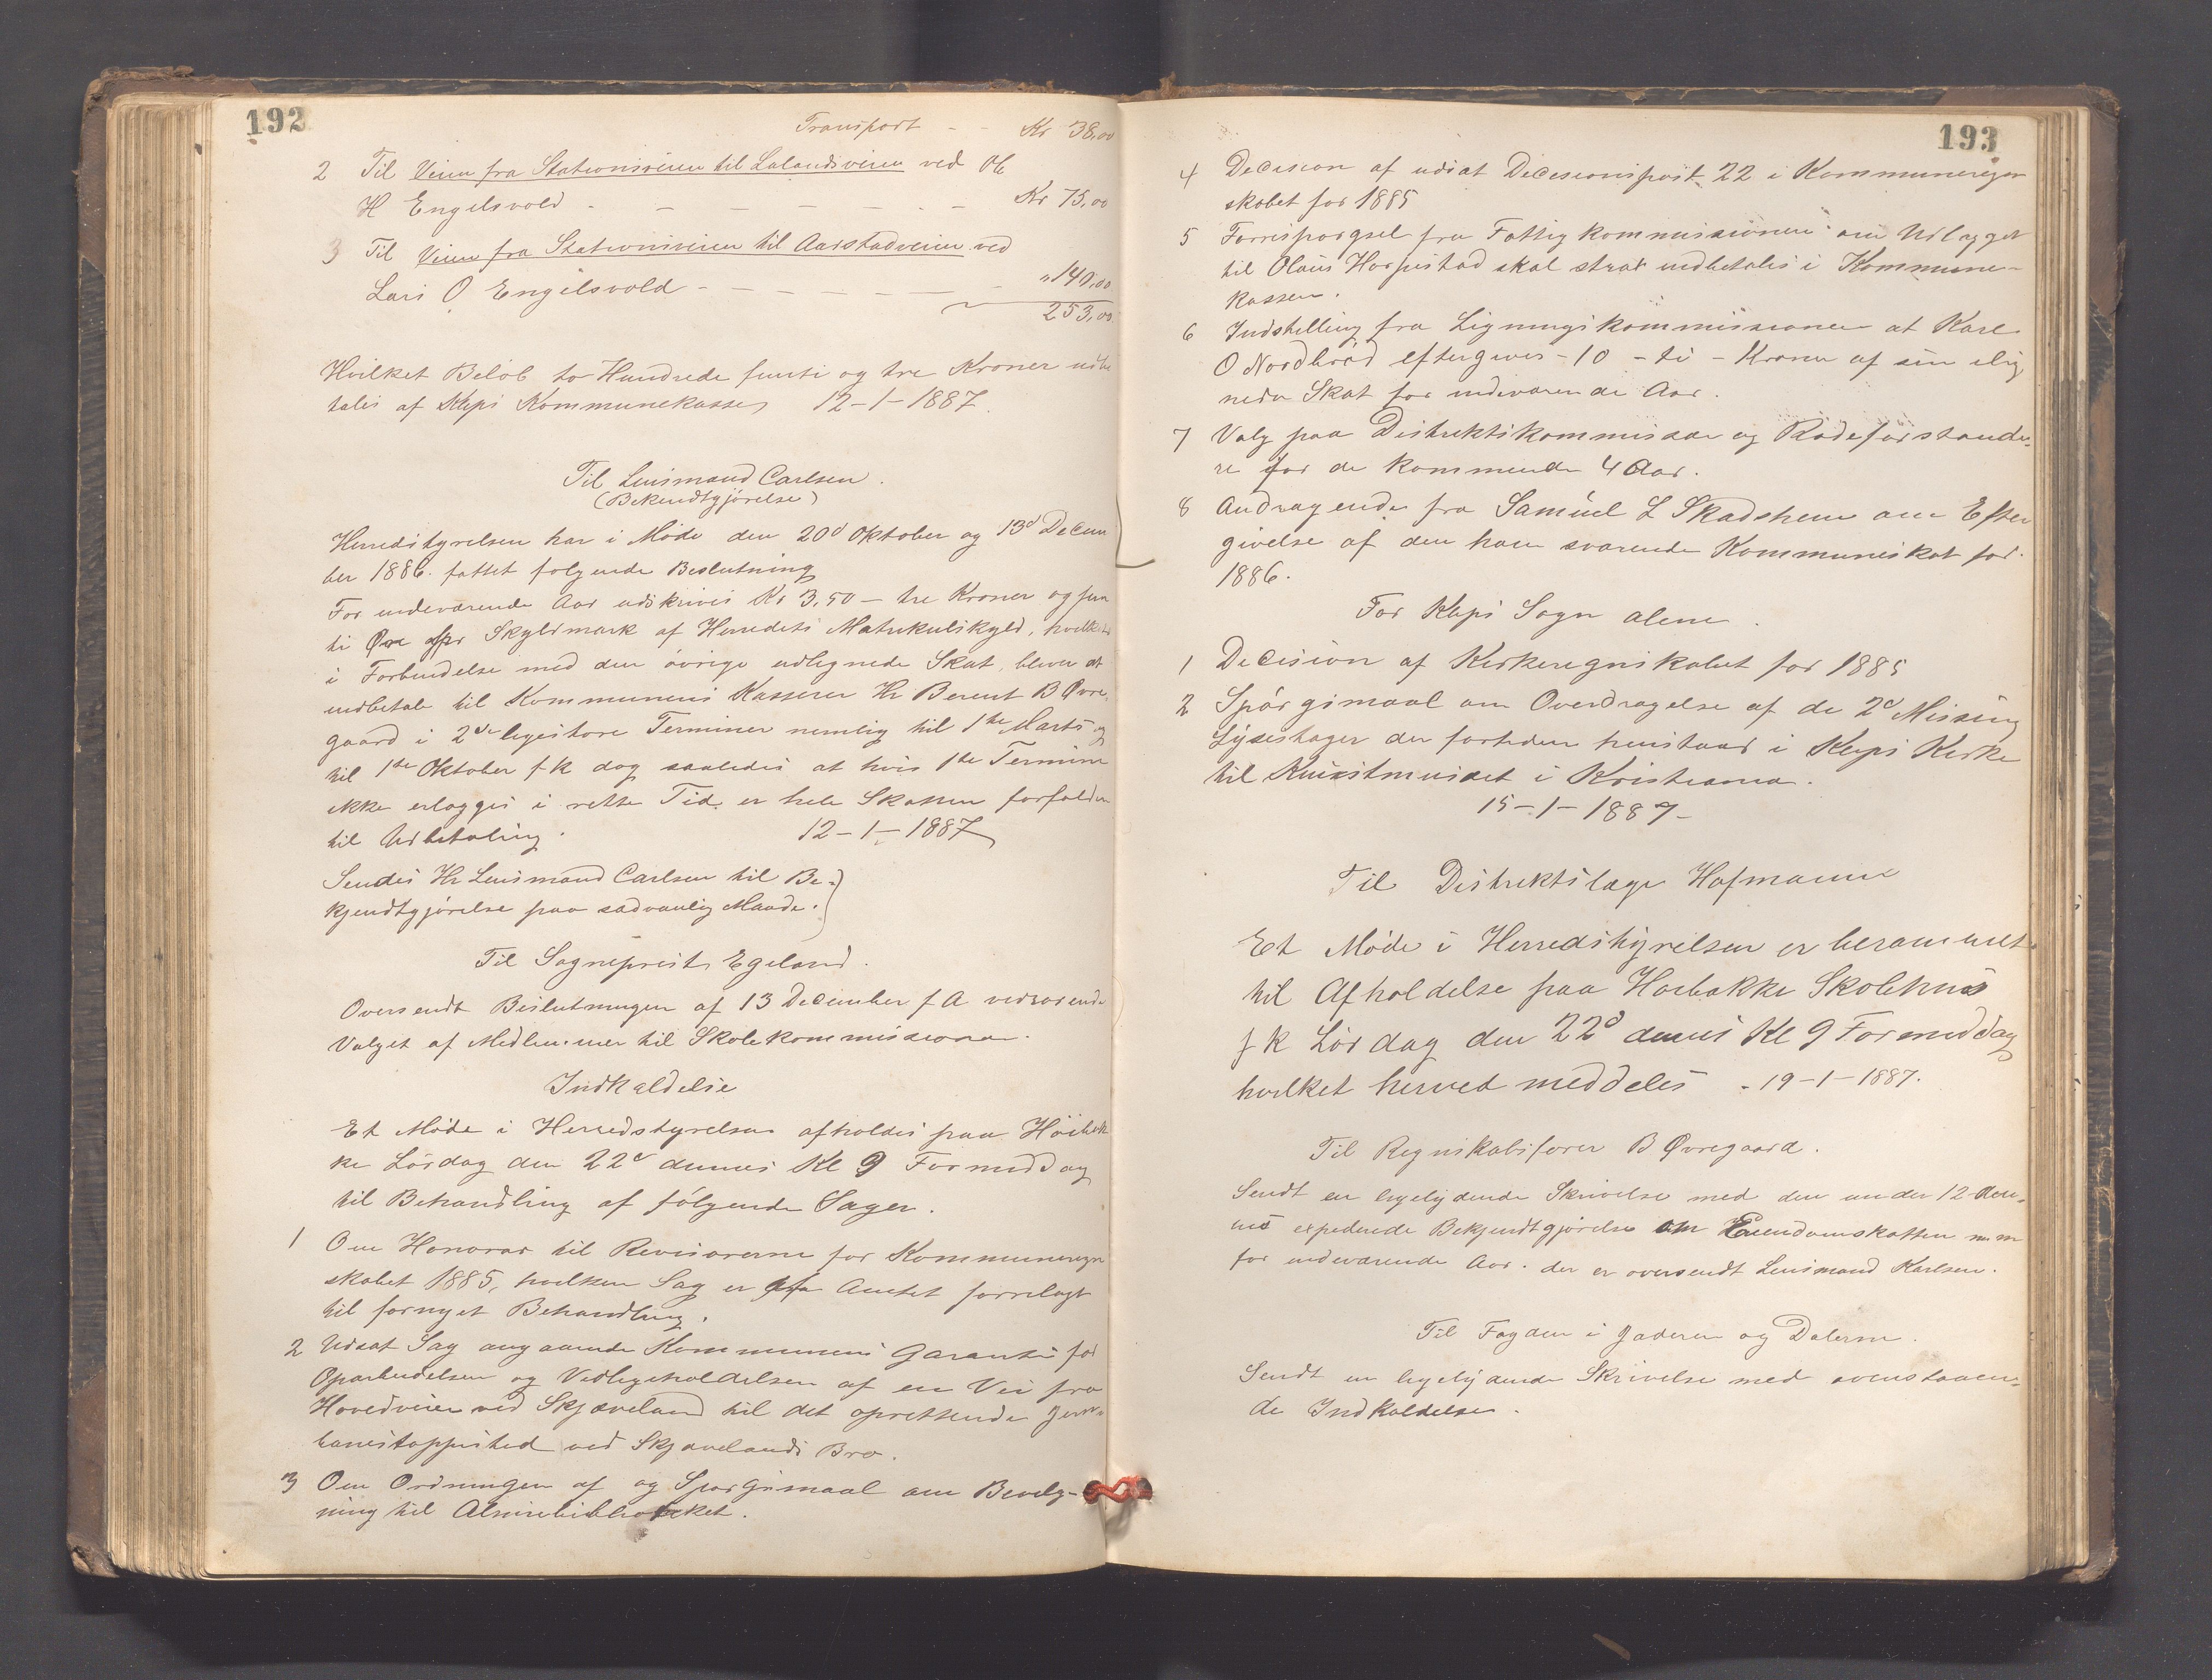 192
Transport - - Kr 38,00
2 Til Veien fra Stationsveien til Lalandsveien ved Ole
H Engelsvold - - - - - - Kr 75,00
3 Til Veien fra Stationsveien til Aarstadveien ved
Lars O Engelsvold - - - - - - „ 140,00
253,00
Hvilket Beløb to Hundrede femti og tre Kroner udbe
tales af Kleps Kommunekasse, 12-1-1887.
Til Lensmand Carlsen.
(Bekendtgjørelse)
Herredstyrelsen har i Møde den 20d Oktober og 13d Decem
ber 1886. fattet følgende Beslutning
For indeværende Aar udskrives Kr 3,50 - tre Kroner og fem
ti Øre pr Skyldmark af Herredets Matrikulskyld, hvilket
i Forbindelse med den øvrige udlignede Skat, bliver at
indbetale til Kommunens Kasserer Hr Berent B Øvre-
gaard i 2de ligestore Terminer nemlig til 1ste Marts og
til 1ste Oktober f k dog saaledes at hvis 1ste Termin
ikke erlægges i rette Tid er hele Skatten forfalden
til Udbetaling. 12-1-1887
Sendes Hr Lensmand Carlsen til Be-
kjendtgjørelse paa sædvanlig Maade.
Til Sogneprest Egeland.
Oversendt Beslutningen af 13 December f A vedrørende
Valget af Medlemmer til Skolekommissionen.
Indkaldelse
Et Møde i Herredstyrelsen afholdes paa Høibak
ke Lørdag den 22d dennes Kl 9 Formiddag
til Behandling af følgende Sager.
1 Om Honorar til Revisorerne for Kommuneregn
skabet 1885, hvilken Sag er fra Amtet forrelagt
til fornyet Behandling.
2 Udsat Sag angaaende Kommunens Garanti for
Oparbeidelsen og Vedligeholdelsen af en Vei fra
Hovedveien ved Skjæveland til det oprettende Jern-
banestoppested ved Skjævelands Bro.
3 Om Ordningen af og Spørgsmaal om Bevilg-
ning til Almuebibliotheket.
193
4 Decision af udsat Decesionspost 22 i Kommuneregn
skabet for 1885
5 Forrespørgsel fra Fattigkommissionen om Udlægget
til Olaus Horpestad skal strax indbetales i Kommune-
kassen.
6 Indstilling fra Ligningskommissionen at Karl
O Nordbrød eftergives - 10 - ti - Kroner af sin ilig
nede Skat for indeværende Aar.
7 Valg paa Distriktskommissær og Rodeforstande-
re for de kommende 4 Aar.
8 Andragende fra Samuel L Skadsheim om Efter
givelse af den ham svarende Kommuneskat for
1886.
For Kleps Sogn alene.
1 Decision af Kirkeregnskabet for 1885
2 Spørgsmaal om Overdragelse af de 2d Missing
Lysestager der fortiden henstaar i Kleps Kirke
til Kunstmuseet i Kristiania.
15-1-1887-
Til Distriktslæge Hofmann
Et Møde i Herredstyrelsen er berammet
til Afholdelse paa Høibakke Skolehus
f k Lørdag den 22d dennes Kl 9 Formiddag
hvilket herved meddeles - 19-1-1887.
Til Regnskabsfører B Øvregaard.
Sendt en ligelydende Skrivelse med den under 12 den-
nes expederede Bekjendtgjørelse om Eiendomskatten m m
for indeværende Aar. der er oversendt Lensmand Karlsen.
Til Fogden i Jæderen og Dalerne.
Sendt en ligelydende Skrivelse med ovenstaaen-
de Indkaldelse.